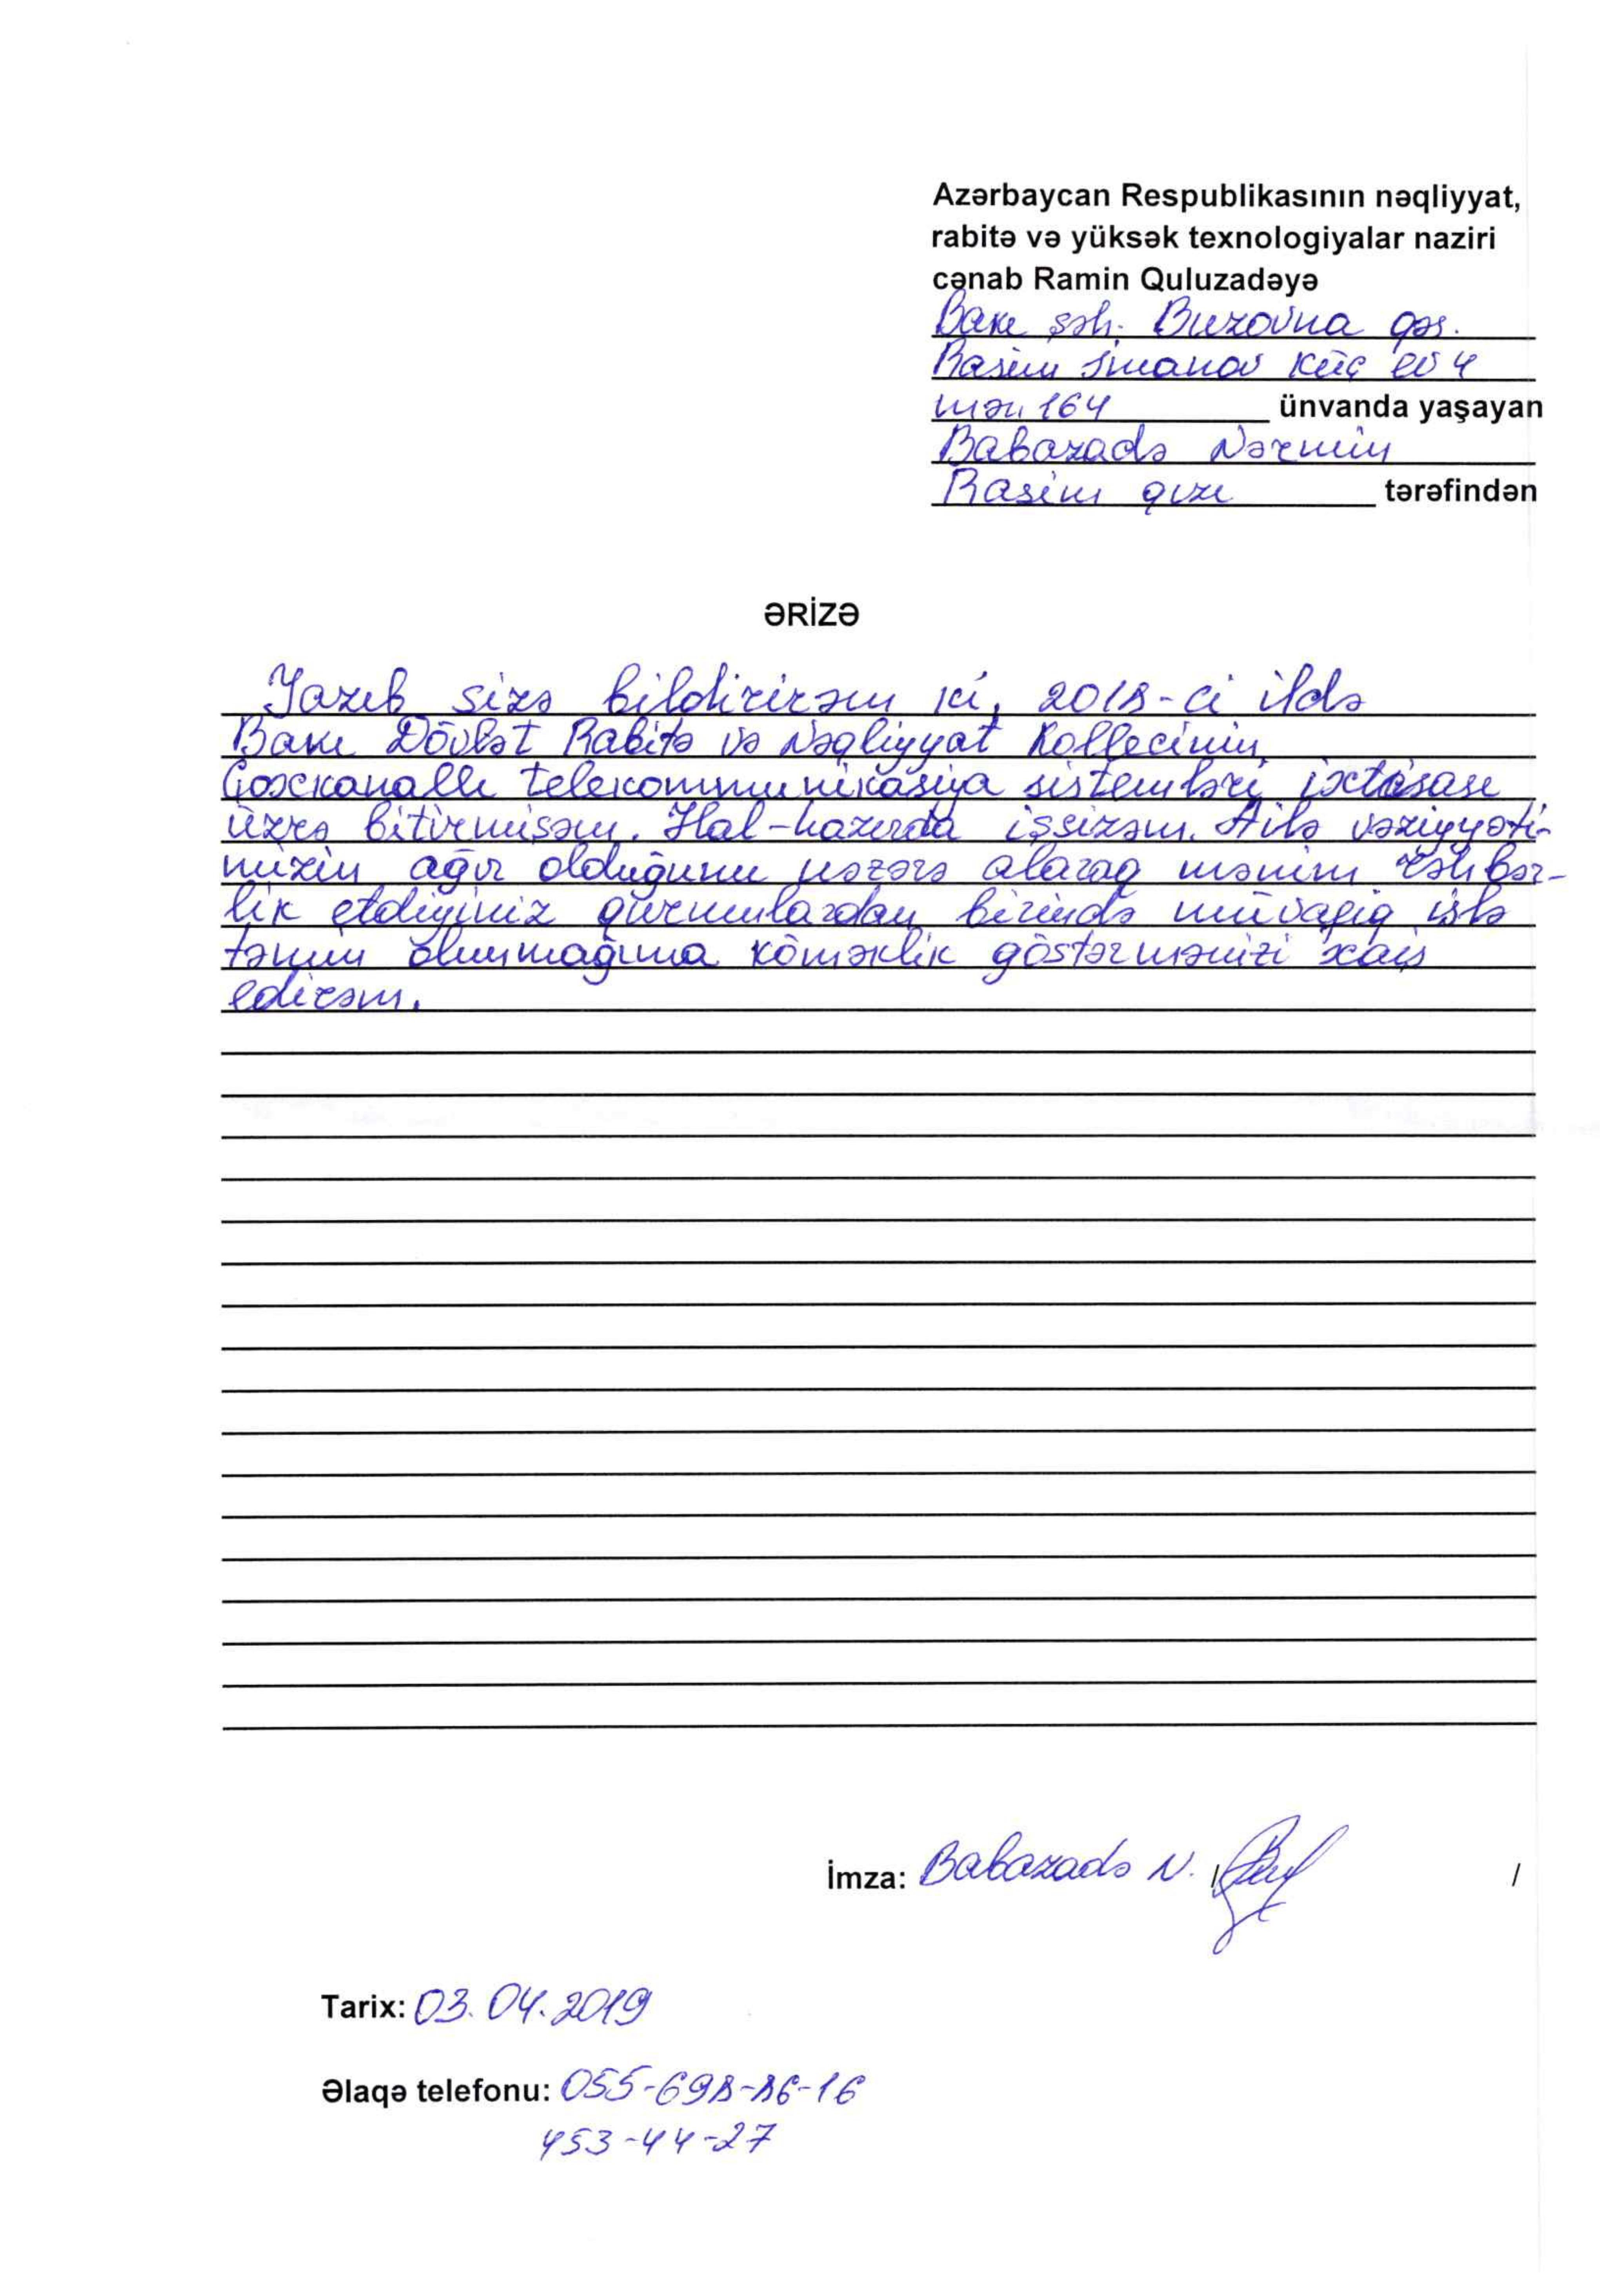 Azərbaycan Respublikasının nəqliyyat,
rabitə və yüksək texnologiyalar naziri
cənab Ramin Quluzadəyə
Bakı şəh. Buzovna qəs.
Rasim İmanov küç ev 4
mən 164 ünvanda yaşayan
Babazadə Nərmin
Rasim qızı tərəfindən
ƏRİZƏ
Yazıb sizə bildirirəm ki, 2018-ci ildə
Bakı Dövlət Rabitə və Nəqliyyat Kollecinin
Çoxkanallı telekommunikasiya sistemləri ixtisası
üzrə bitirmişəm. Hal-hazırda işsizəm. Ailə vəziyyəti-
mizin ağır olduğunu nəzərə alaraq mənim rəhbər-
lik etdiyiniz qurumlardan birində müvafiq işlə
təmin olunmağıma köməklik göstərmənizi xaiş
edirəm.
İmza: Babazadə N. / /
Tarix: 03.04.2019
Əlaqə telefonu: 055-698-86-16
453-44-27